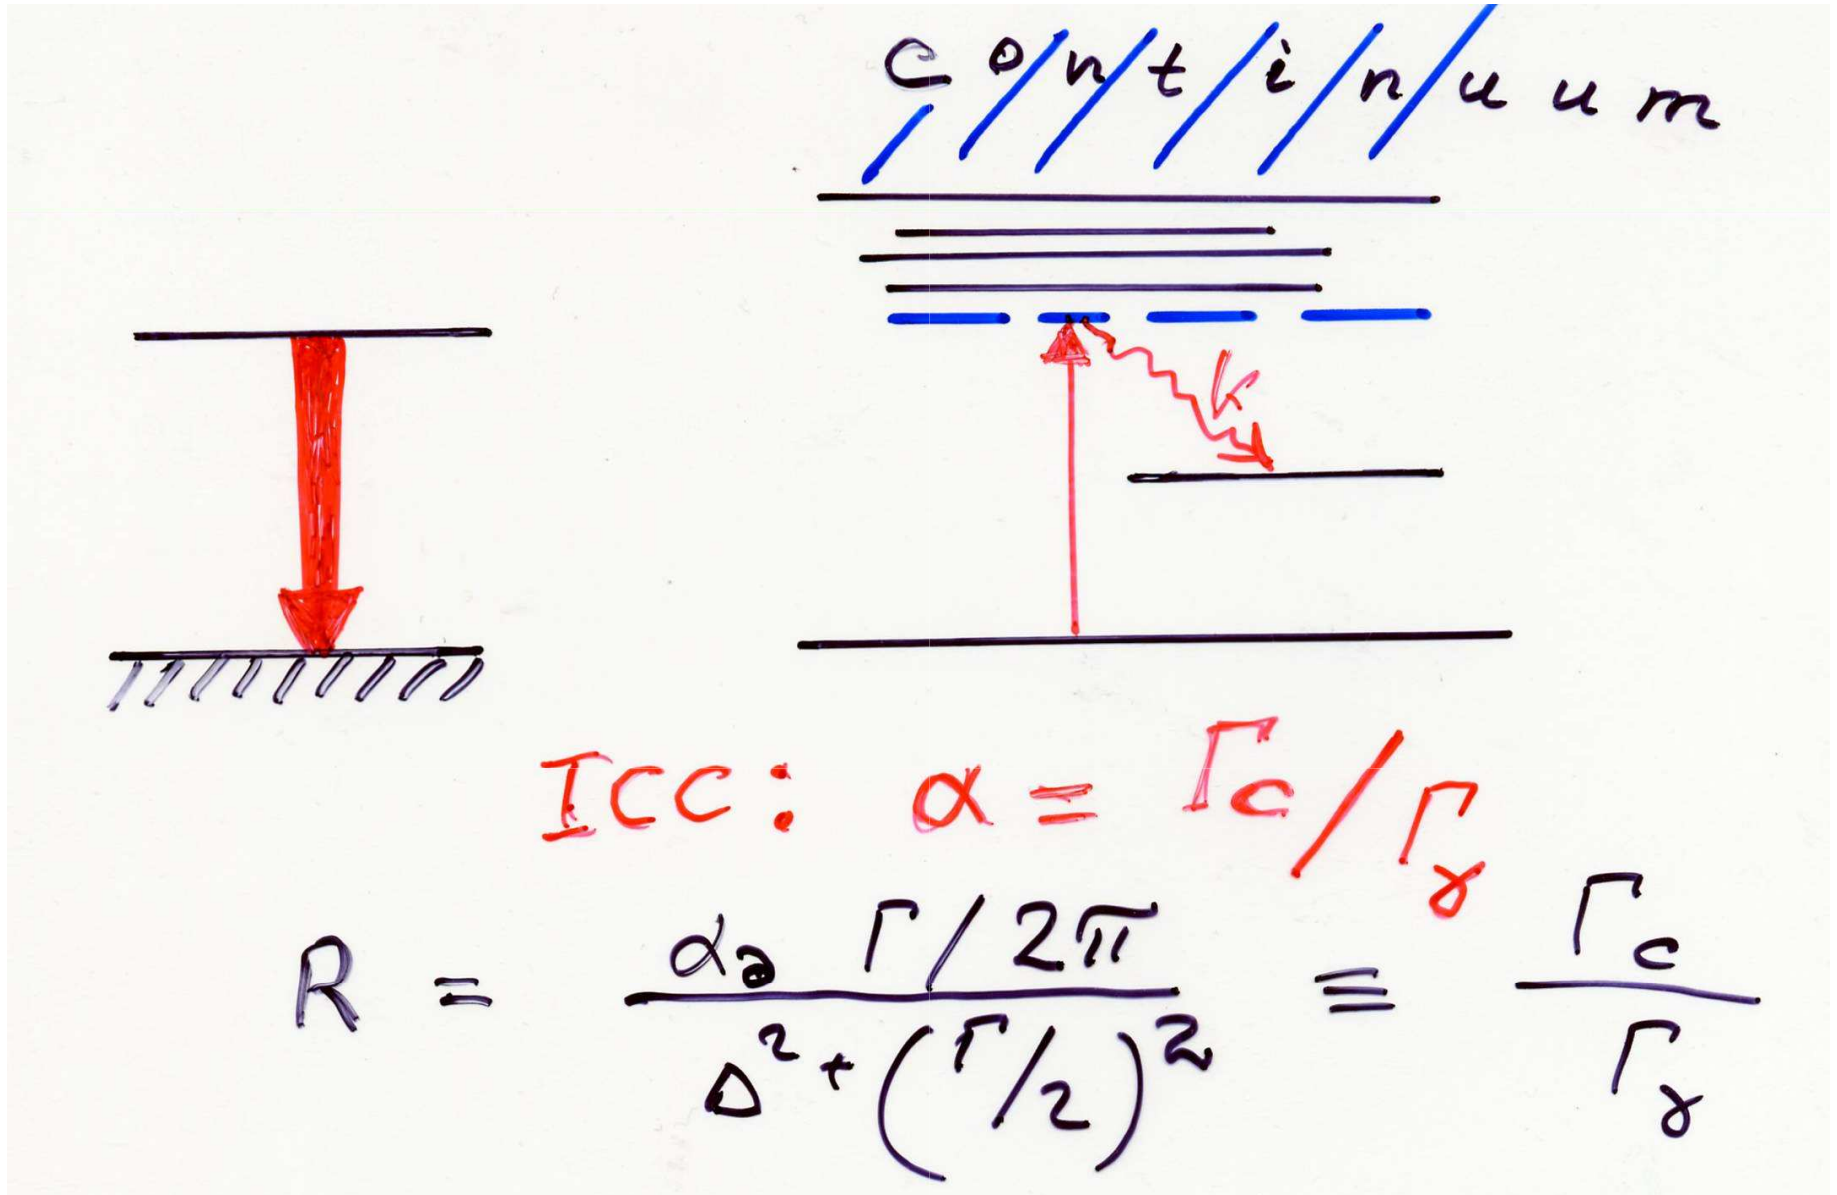 Continuum
k
ICC: α = Γc/Γγ
R = αd Γ/2π / Δ² + (Γ/2)² ≡ Γc / Γγ